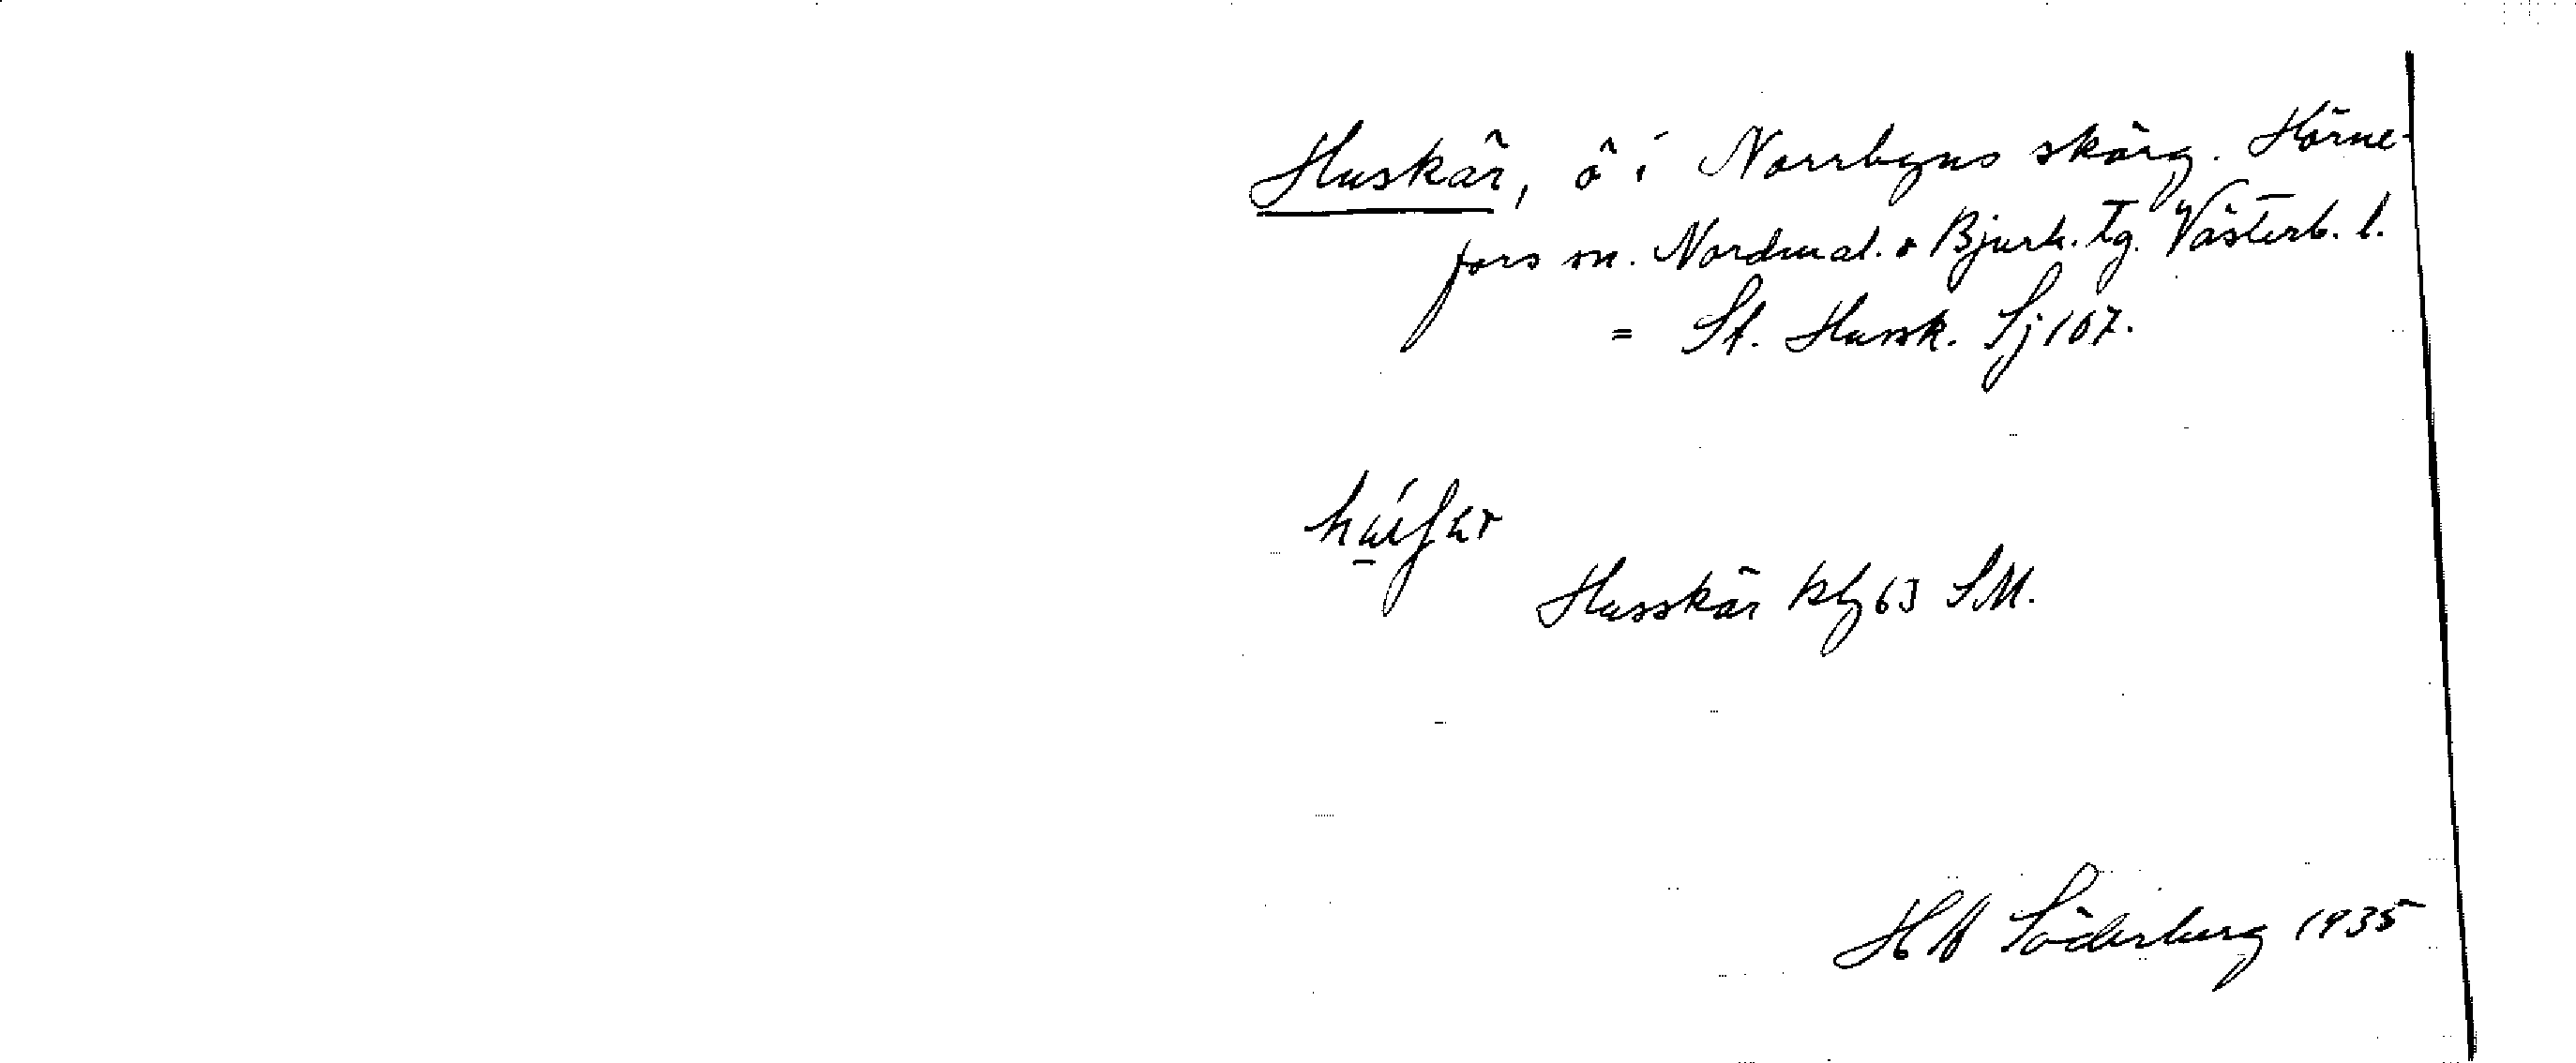 Huskär, ö i Norrbyns skärg. Hörne-
fors sn. Nordmal. o Bjurh. tg. Västerb. l.
= St. Hussk. Sj 107.
Husskär kbl 63 SM.
HB Söderberg 1935